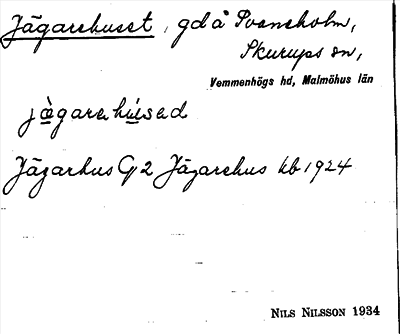 Jägarehuset, gd å Svaneholm,
Skurups sn,
Vemmenhögs hd, Malmöhus län
jägarehúsed
Jägarhus G 2 Jägarehus kb 1924
NILS NILSSON 1934